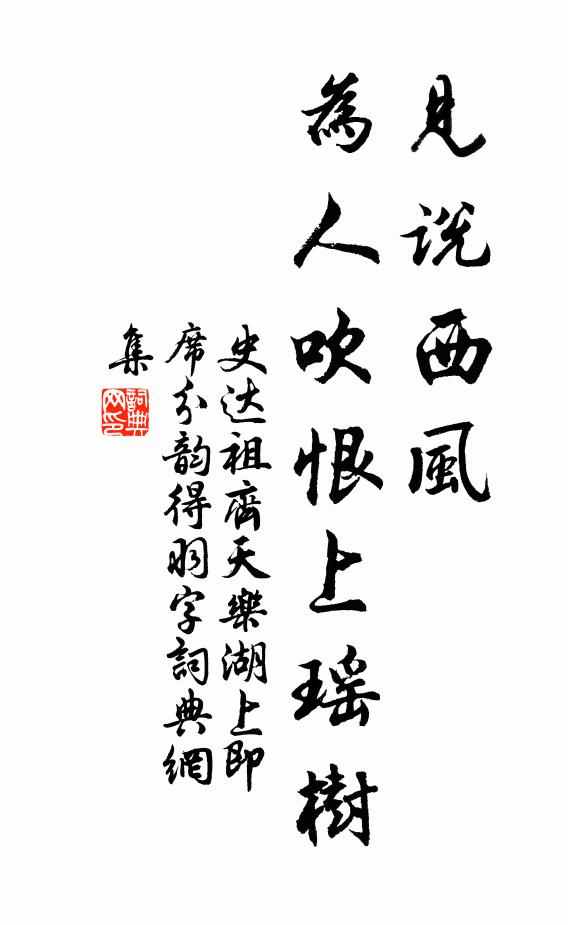 見説西風
為人吹恨上瑶樹
史达祖齊天樂湖上即
席分韵得羽字詞典網
集
詞典網印